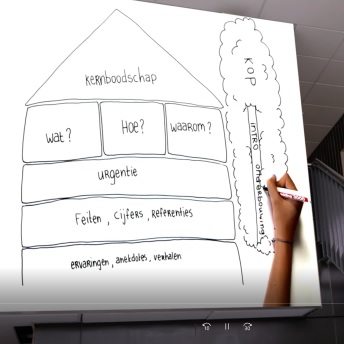 kernboodschap
wat?
Hoe?
waarom?
urgentie
Feiten, cijfers, referenties
ervaringen, anekdotes, verhalen
KOP
intro
onderbouwing
10
30